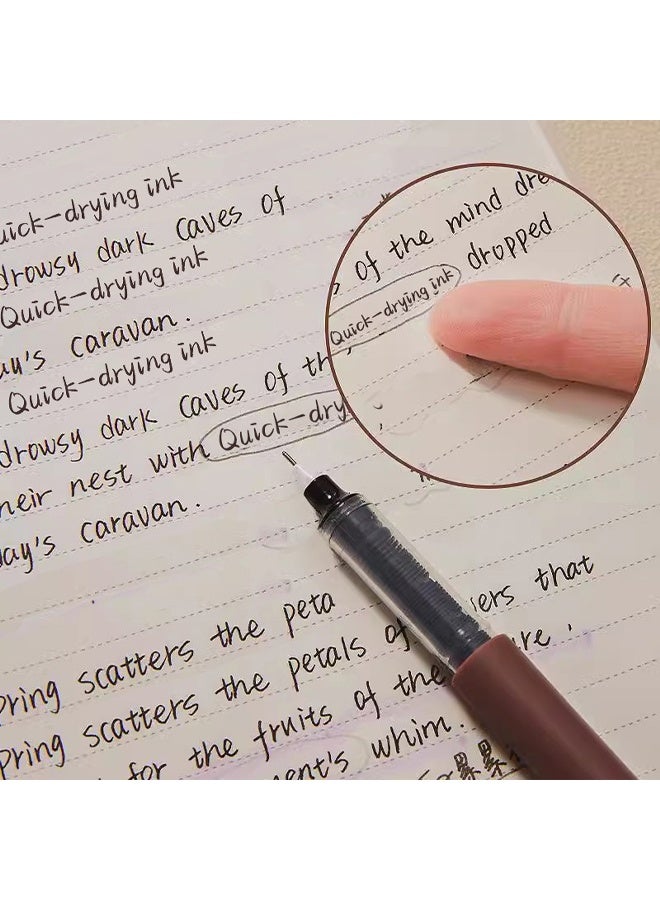 uick-drying ink
drowsy dark caves of
Quick-drying ink
ay's caravan.
Quick-drying ink
drowsy dark caves of th
heir nest with Quick-dry
day's caravan.
pring scatters the peta ers that
pring scatters the petals of the ure.
for the fruits of the
ment's whim.
累累
of the mind dre
dropped
Quick-drying ink